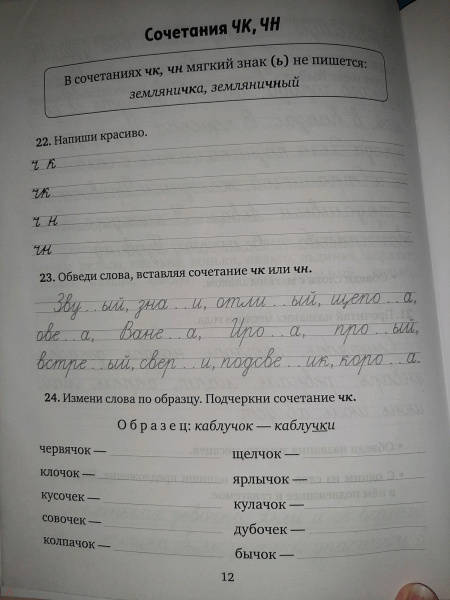 Сочетания ЧК, ЧН
В сочетаниях чк, чн мягкий знак (ь) не пишется:
земляничка, земляничный
22. Напиши красиво.
ч к
чк
ч н
чн
23. Обведи слова, вставляя сочетание чк или чн.
Зву...ый, зна...и, отли...ый, щепо...а,
ове...а, Ване...а, Иро...а, про...ый,
встре...ый, свер...и, подсве...ик, коро...а.
24. Измени слова по образцу. Подчеркни сочетание чк.
Образец: каблучок — каблучки
червячок — щелчок —
клочок — ярлычок —
кусочек — кулачок —
совочек — дубочек —
колпачок — бычок —
12